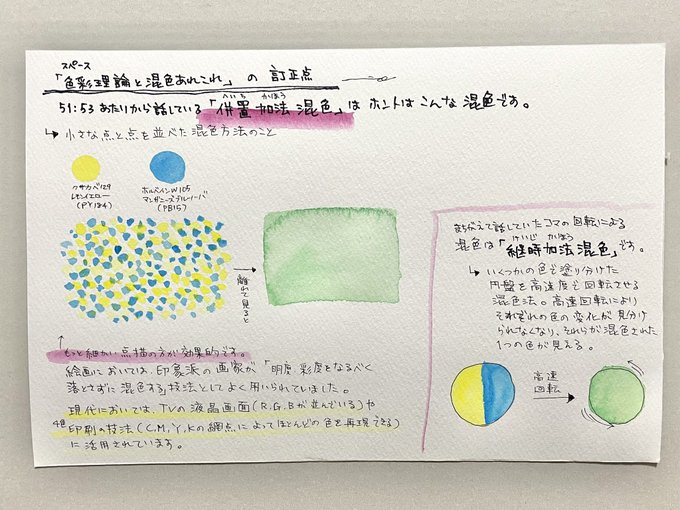 スペース
「色彩理論と混色あれこれ」の 訂正点
へいち かほう
51:53 あたりから話している「併置加法混色」は ホントは こんな 混色です。
↳ 小さな点と点を並べた混色方法のこと
クサカベ129
レモンイエロー
(PY184)
ホルベインW105
マンガニーズブルーノーバ
(PB15)
離れて見ると
↑
もっと細かい点描の方が効果的です。
絵画においては、印象派の画家が「明度 彩度をなるべく
落とさずに混色する」技法としてよく用いられていました。
現代においては、TVの液晶画面(R,G,Bが並んでいる)や
4色
印刷の技法(C,M,Y,Kの網点によってほとんどの色を再現できる)
に活用されています。
まちがえて話していたコマの回転による
けいじ かほう
混色は「継時加法混色」です。
↳ いくつかの色で塗り分けた
円盤を高速度で回転させる
混色法。高速回転により
それぞれの色の変化が見分け
られなくなり、それらが混色された
1つの色が見える。
高速
回転